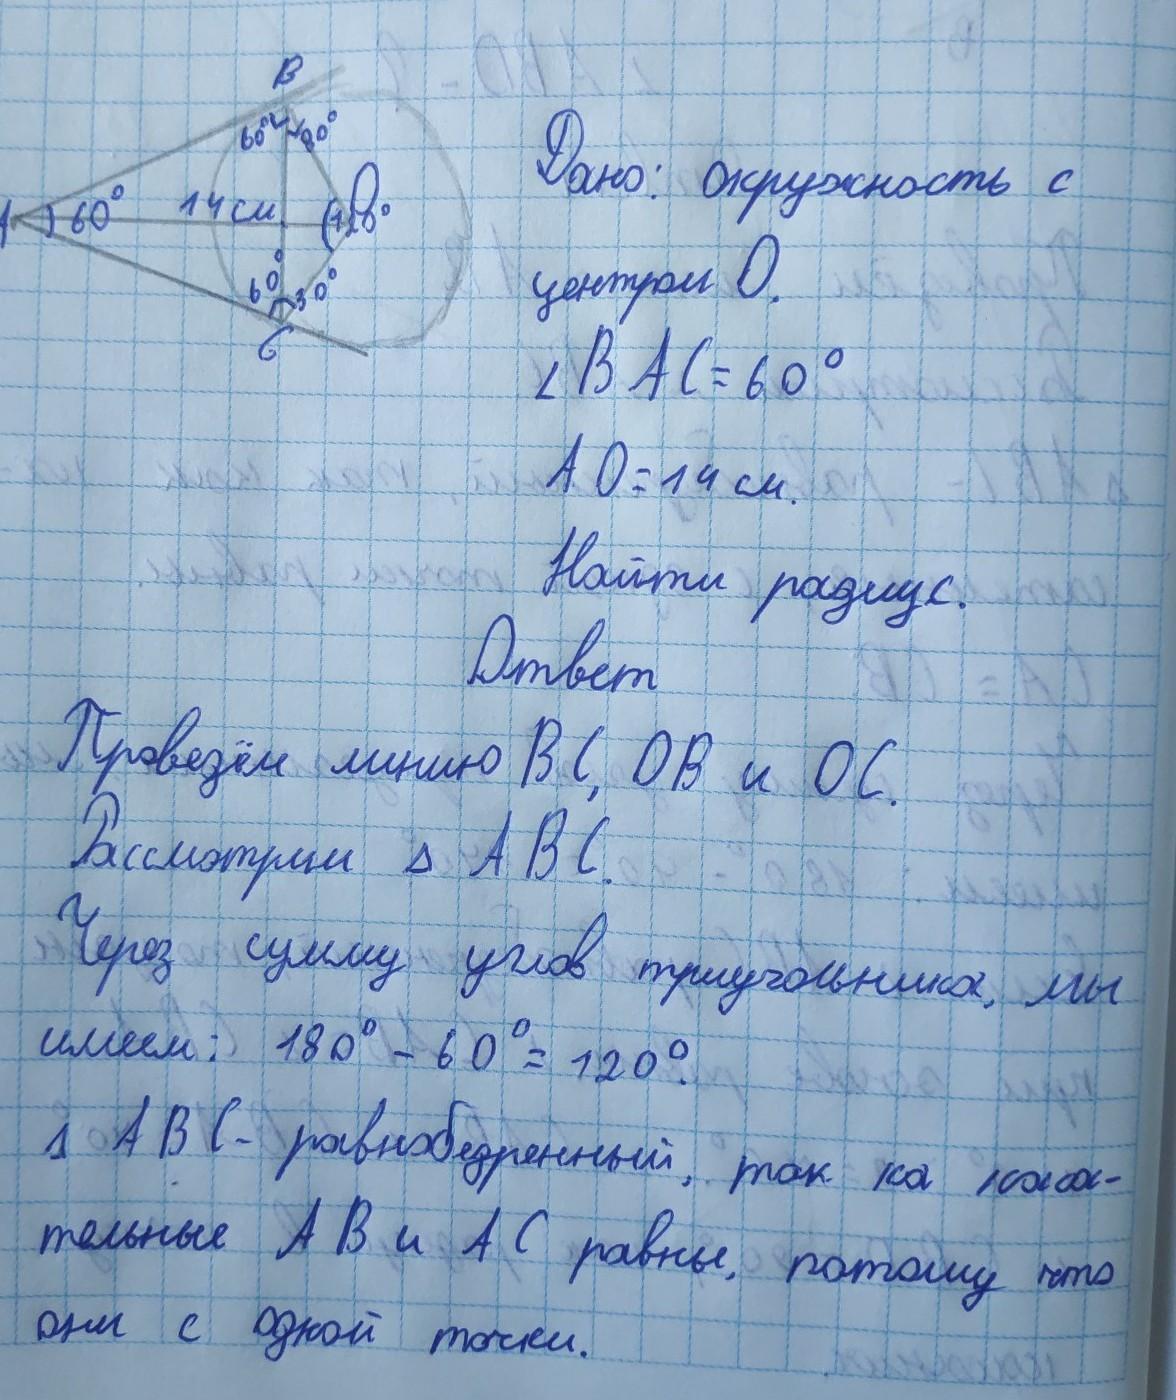 B
60° 30°
A 60° 14 см O 120°
60° 30°
C
Дано: окружность с
центром O.
∠BAC=60°
AO=14 см.
Найти радиус.
Ответ
Проведём линию BC, OB и OC.
Рассмотрим Δ ABC.
Через сумму углов треугольника, мы
имеем: 180° - 60° = 120°.
Δ ABC - равнобедренный, так ка каса-
тельные AB и AC равны, потому что
они с одной точки.